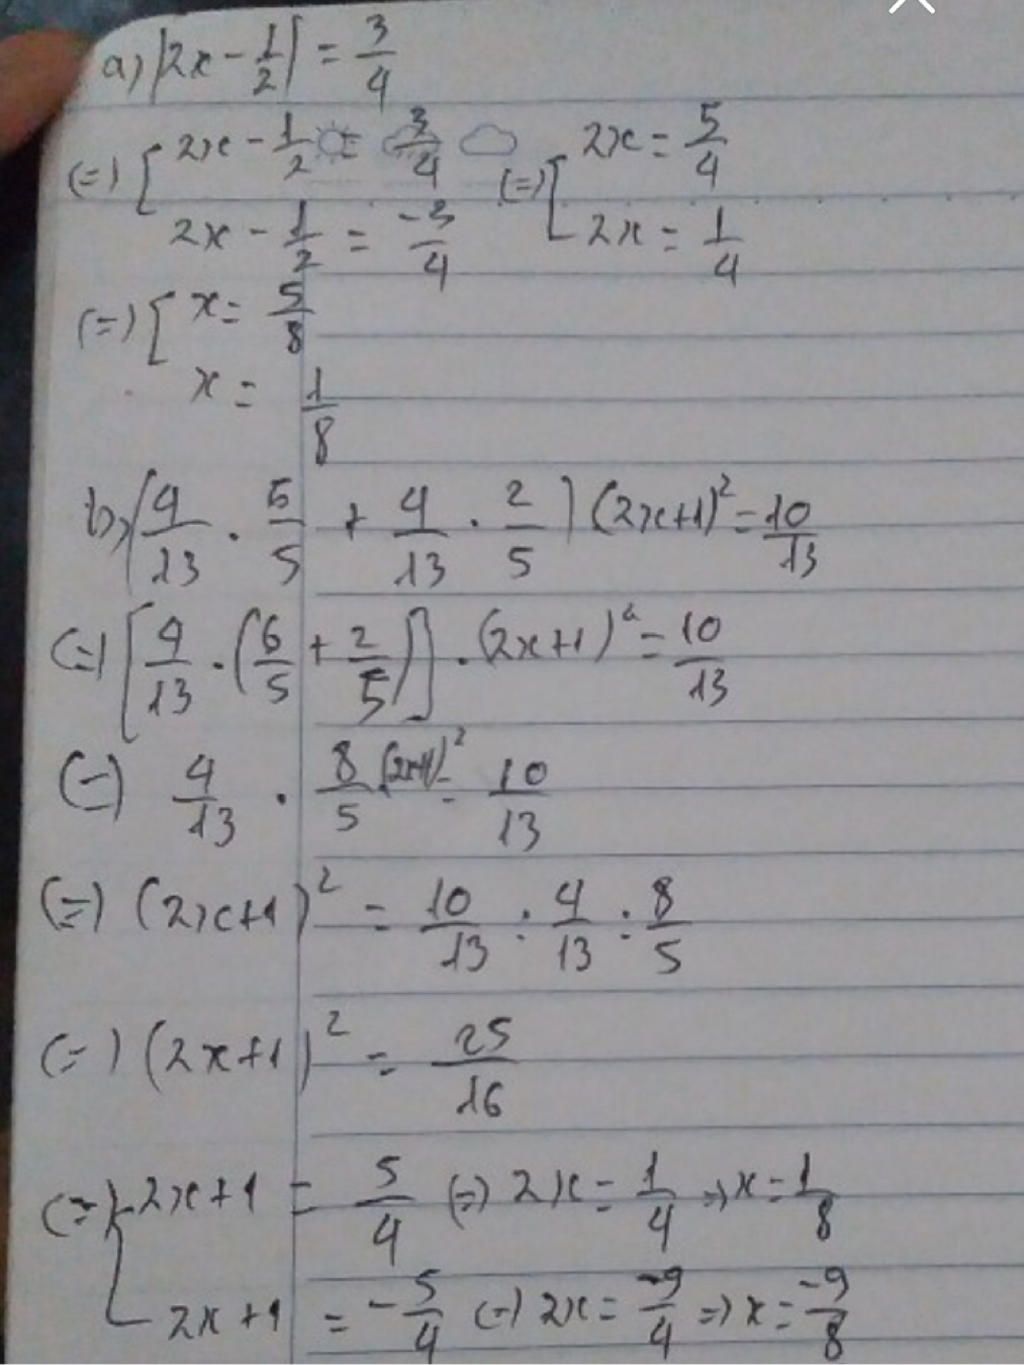 a) |2x - 1/2| = 3/4
(=) [ 2x - 1/2 = 3/4 (=) [ 2x = 5/4
2x - 1/2 = -3/4 2x = 1/4
(=) [ x = 5/8
x = 1/8
b) (4/13 . 6/5 + 4/13 . 2/5) (2x+1)² = 10/13
(=) [4/13 . (6/5 + 2/5)] . (2x+1)² = 10/13
(=) 4/13 . 8/5 (2x+1)² = 10/13
(=) (2x+1)² = 10/13 : 4/13 : 8/5
(=) (2x+1)² = 25/16
(=) [ 2x+1 = 5/4 (=) 2x = 1/4 => x = 1/8
2x+1 = -5/4 (=) 2x = -9/4 => x = -9/8